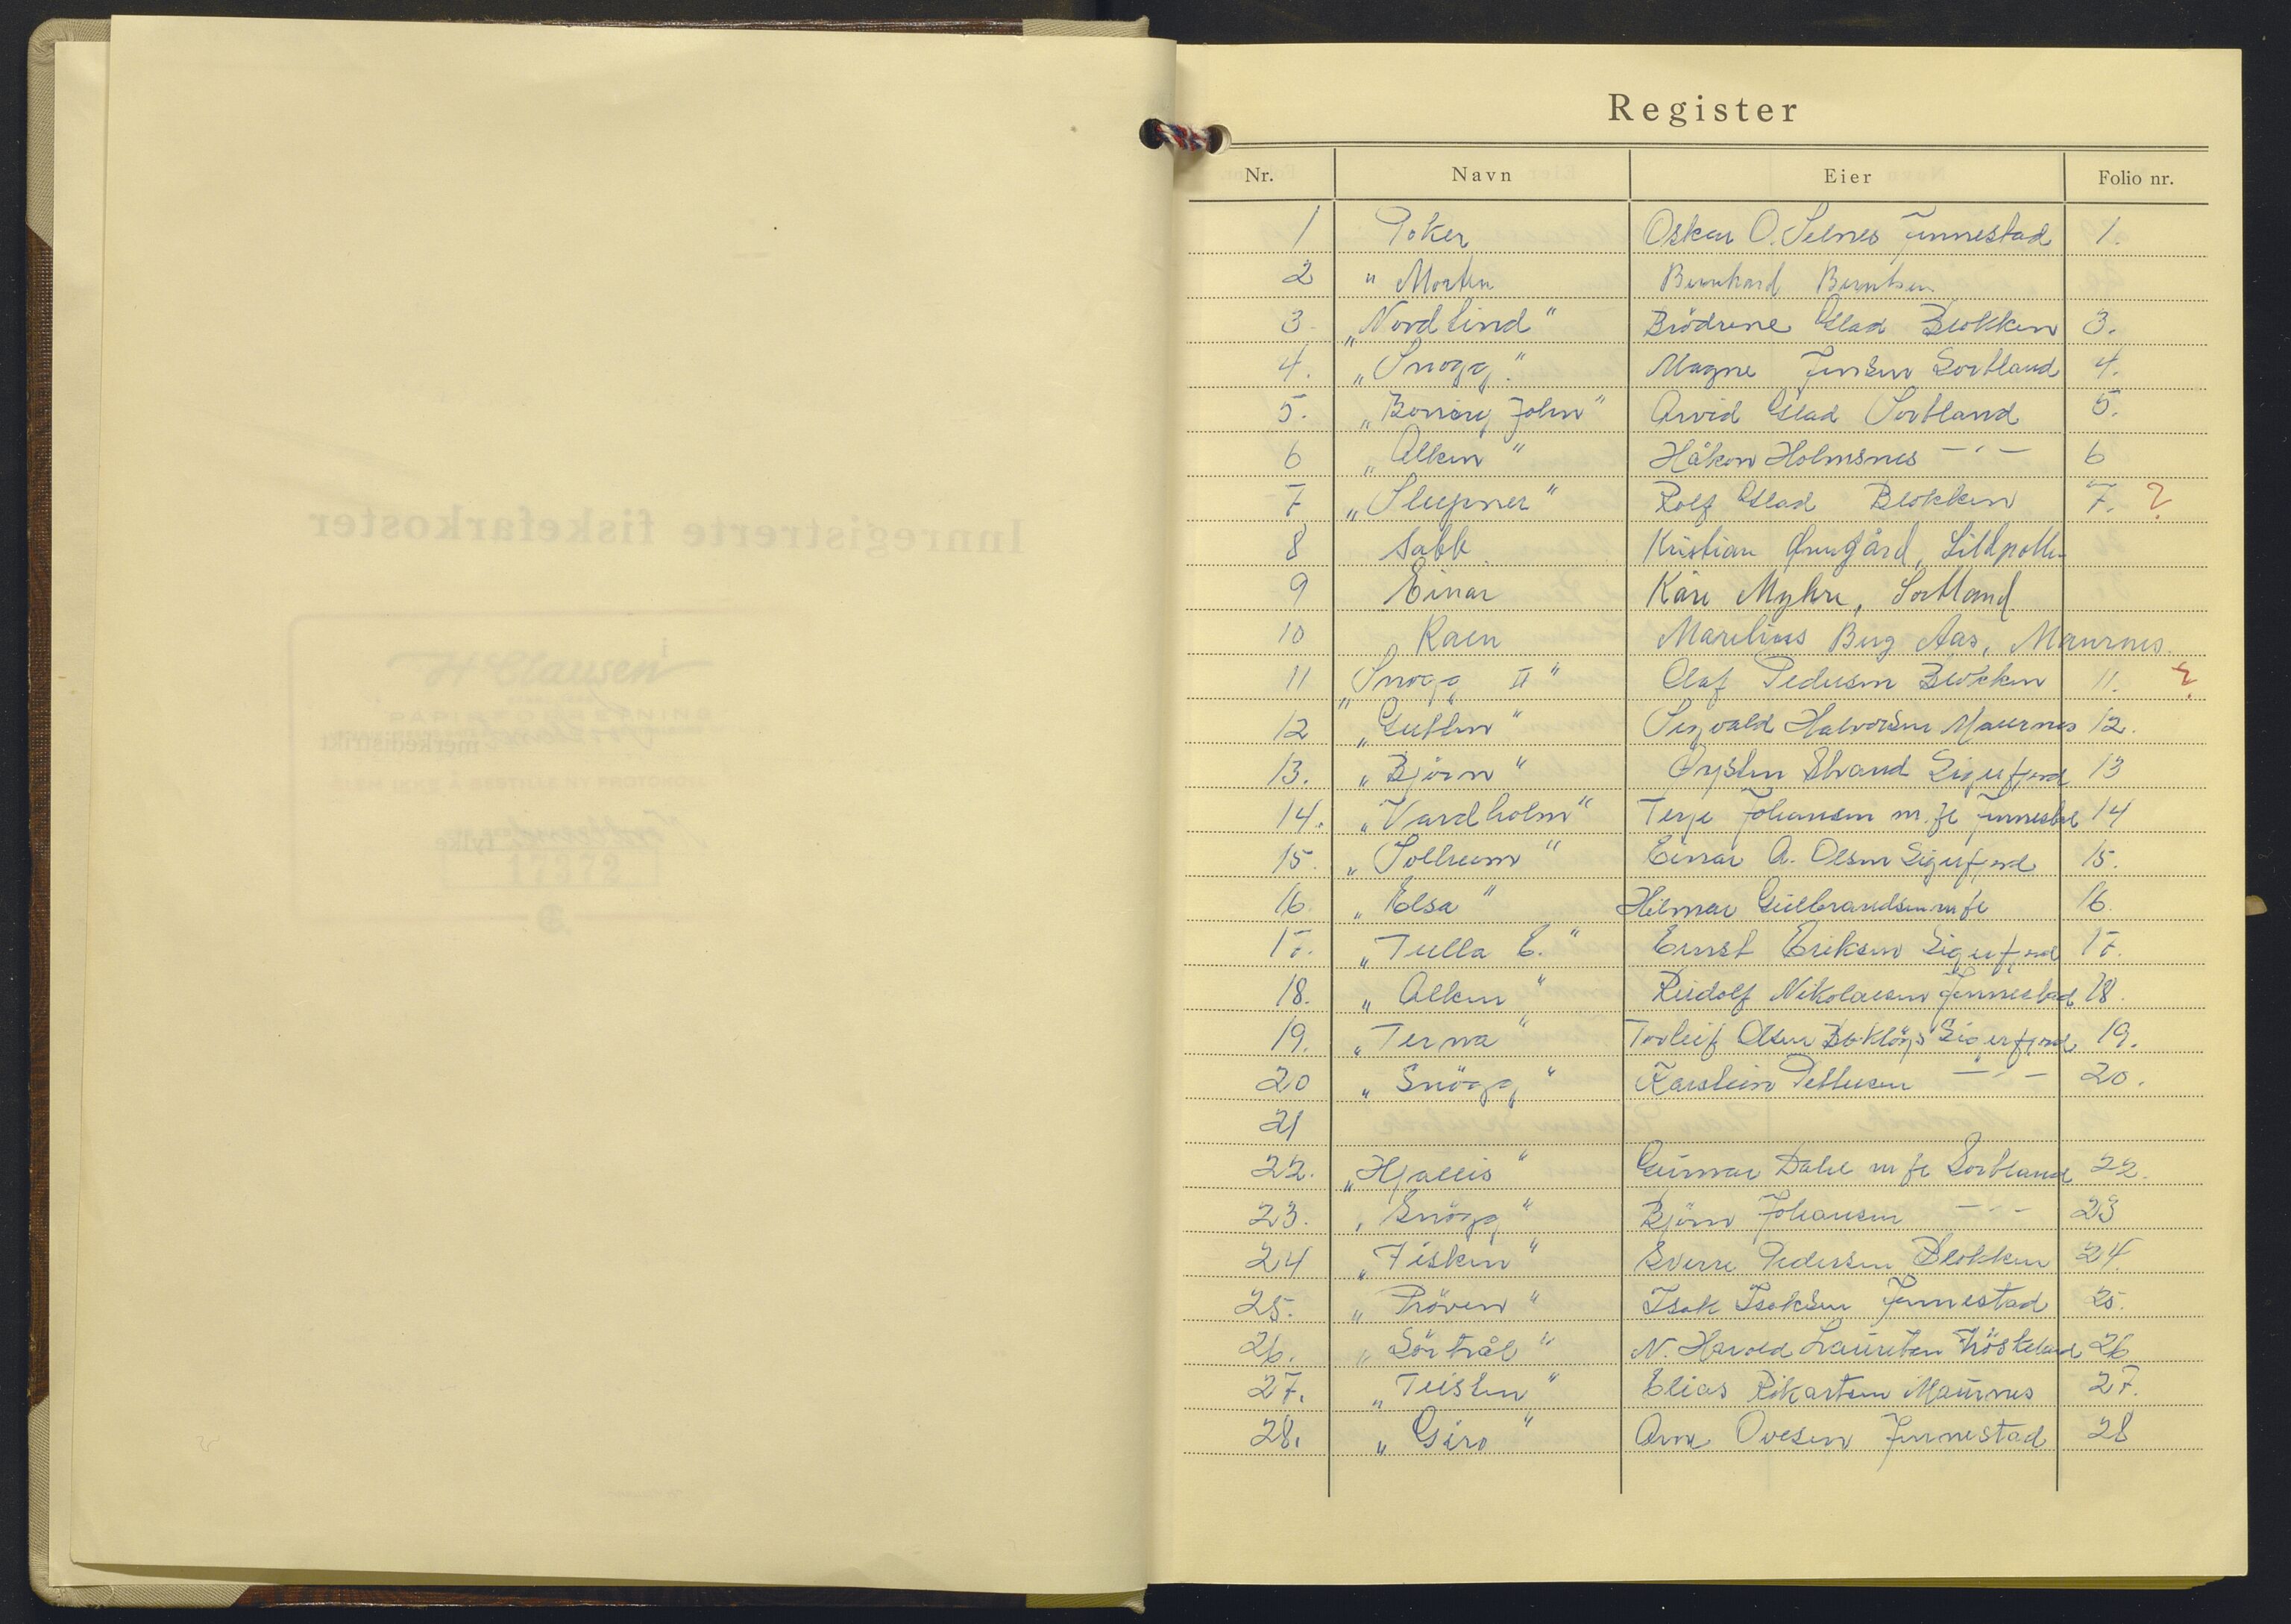 Register
Nr. Navn Eier Folio nr.
1 Poker Oskar O. Selnes Jennestad 1.
2 " Morten Bernhard Berntsen
3 „Nordlind" Brödrene Glad Blokken 3.
4. „Snogg." Magne Jensen Sortland 4.
5. „Bonny John" Arvid Glad Sortland 5.
6 „Alken" Håkon Holmsnes —"— 6
7 „Sleipner" Rolf Glad Blokken 7. ?
8 Sabb Kristian Lillpollen
9 Einar Kåre Myhre, Sortland
10 Raen Marelius Berg Aas, Maurnes.
11 „Snogg II" Olaf Pedersen Blokken 11. ?
12 „Gutten" Sigvald Halvorsen Maurnes 12.
13. „Björn" Øysten Strand Sigerfjord 13
14. „Vardholm" Terje Johansen m. fl Jennestad 14
15. „Solheim" Einar A. Olsen Sigerfjord 15.
16. „Elsa" Hilmar Gulbrandsen m fl 16.
17. „Tulla E." Ernst Eriksen Sigerfjord 17.
18. „Alken" Rudolf Nikolaisen Jennestad 18.
19. „Terna" Torleif Olsen Sigerfjord 19.
20 „Snögg" Karstein Pettersen —"— 20.
21
22. „Hjallis" Gunnar Dahl m fl Sortland 22.
23. „Snögg" Björn Johansen —"— 23
24 „Fisken" Sverre Pedersen Blokken 24.
25. „Pröven" Isak Isaksen Jennestad 25.
26. „Sörtrål" N. Harald Lauritsen 26
27. „Teisten" Elias Rikartsen Maurnes 27.
28. „Giro" Arne Ovesen Jennestad 28